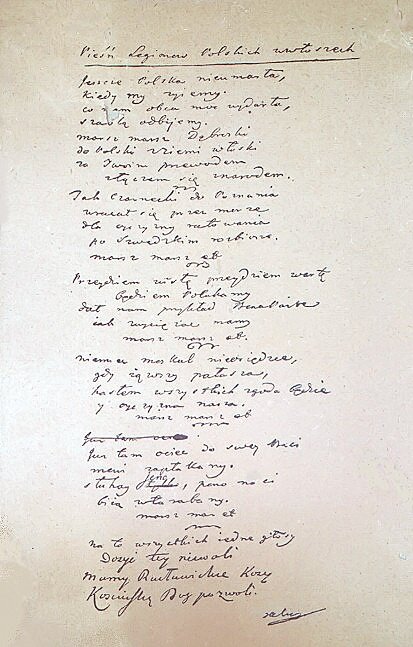 Pieśń Legionow Polskich we włoszech
Jeszcze Polska nieumarła,
kiedy my zyiemy.
co nam obca moc wydarła,
szablą odbijemy.
marsz marsz Dąbroski
do Polski zziemi włoski
za Twoim przewodem
złączem się znarodem.
Jak Czarnecki do Poznania
wracał się przez morze
dla oyczyzny ratowania
po Szwedzkim rozbiorze.
marsz marsz etc
Przeydziem wisłę przeydziem wartę
będziem Polakamy
dał nam przykład Bonaparte
iak zwycięzać mamy
marsz marsz etc.
niemiec moskal nieosiędzie,
gdy iąwszy pałasza,
hasłem wszystkich zgoda będzie
y oyczyzna nasza.
marsz marsz etc
Już tam ociec
Już tam ociec do swey Basi
mowi zapłakany.
słuchay ieno, pono nasi
biią wtarabany.
marsz marsz etc
na to wszystkich iedne głosy
Dosyć tey niewoli
mamy Racławickie Kosy
Kosciuszkę Bog pozwoli.